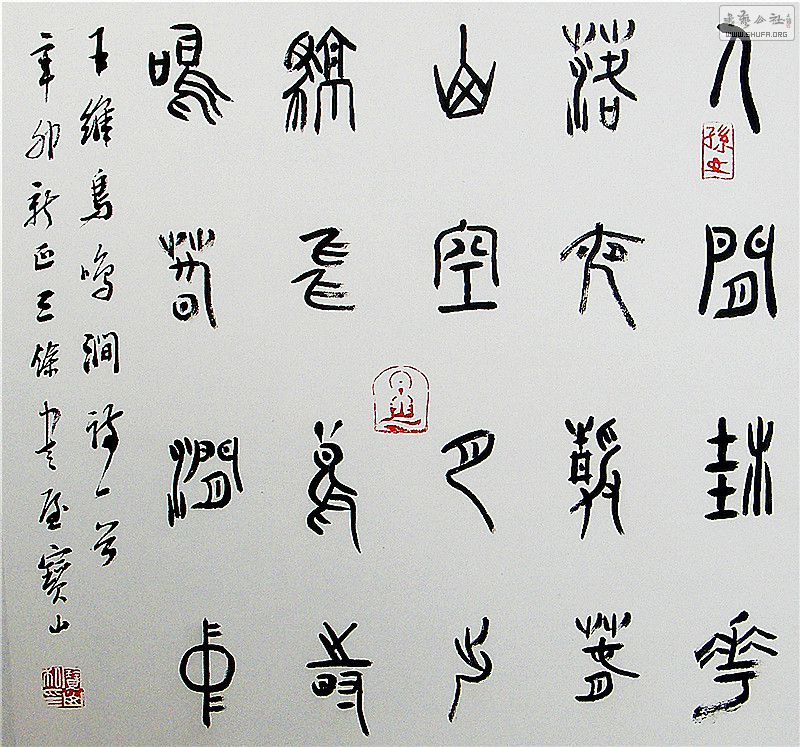 书艺公社
WWW.SHUFA.ORG
人閒桂花
落夜靜春
山空月出
驚山鳥時
鳴春澗中
王維鳥鳴澗詩一首
辛卯新正三餘書屋寶山